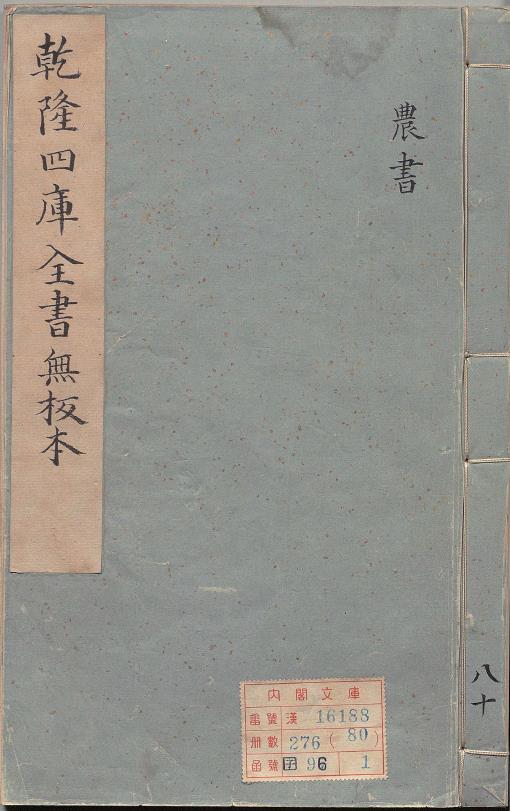 農書
乾隆四庫全書無板本
八十
内閣文庫
番號 漢 16188
册數 276 (80)
函號 96 1